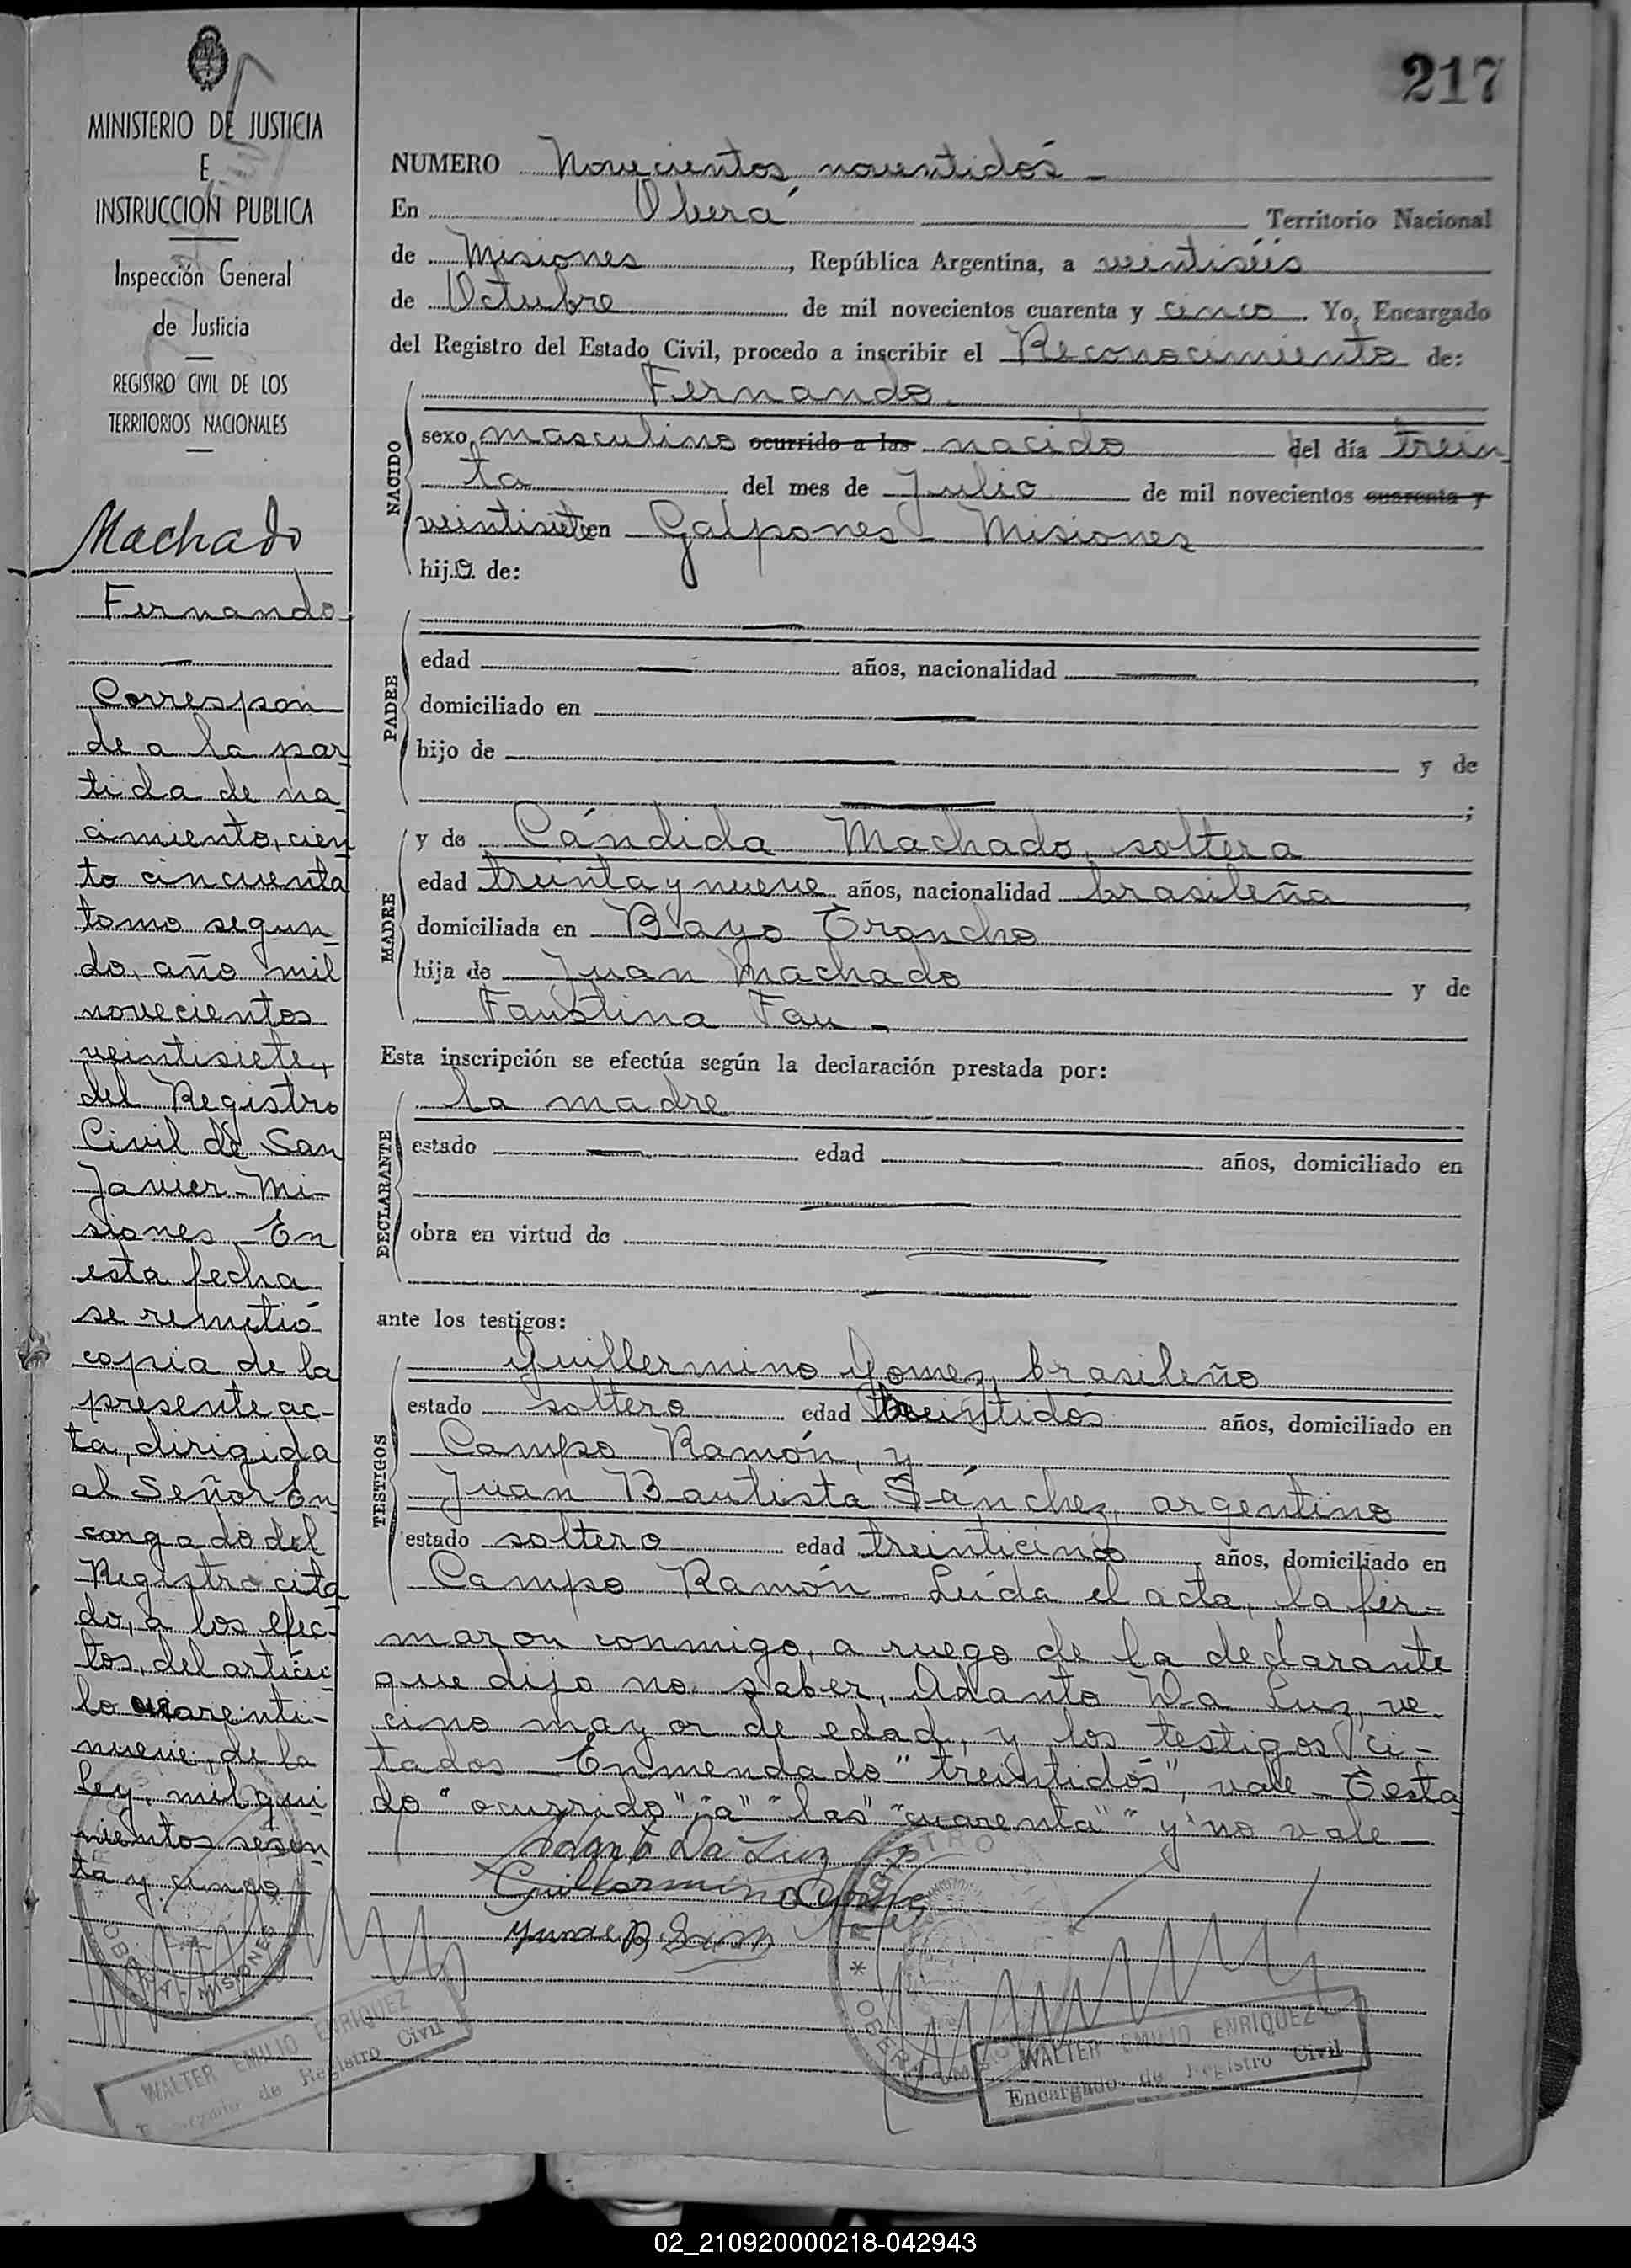 217
MINISTERIO DE JUSTICIA
E
INSTRUCCION PUBLICA
Inspección General
de Justicia
REGISTRO CIVIL DE LOS
TERRITORIOS NACIONALES
Machado
Fernando
Correspon
de a la par
tida de na
cimiento, cien
to cincuenta
tomo segun
do, año mil
novecientos
veintisiete,
del Registro
Civil de San
Javier - Mi-
siones - En
esta fecha
se remitió
copia de la
presente ac-
ta, dirigida
al Señor En
cargado del
Registro cita
do, a los efec-
tos, del artícu
lo cuarenti-
nueve, de la
ley, mil qui
nientos sesen
ta y cinco
NUMERO Novecientos noventidós -
En Oberá Territorio Nacional
de Misiones, República Argentina, a veintiséis
de Octubre de mil novecientos cuarenta y cinco. Yo, Encargado
del Registro del Estado Civil, procedo a inscribir el Reconocimiento de:
NACIDO
Fernando.
sexo masculino ocurrido a las nacido del día trein
ta del mes de Julio de mil novecientos cuarenta y
veintisiete en Galpones - Misiones
hijo de:
PADRE
edad — años, nacionalidad —,
domiciliado en —
hijo de — y de
—;
MADRE
y de Cándida Machado, soltera
edad treinta y nueve años, nacionalidad brasileña,
domiciliada en Bayo Troncho
hija de Juan Machado y de
Faustina Fau -
Esta inscripción se efectúa según la declaración prestada por:
DECLARANTE
la madre
estado — edad — años, domiciliado en
—
obra en virtud de —
—
ante los testigos:
TESTIGOS
Guillermino Gomez, brasileño
estado soltero edad treintidós años, domiciliado en
Campo Ramón, y
Juan Bautista Sánchez, argentino
estado soltero edad treinticinco años, domiciliado en
Campo Ramón - Leída el acta, la fir-
maron conmigo, a ruego de la declarante
que dijo no saber, Adanto Da Luz, ve-
cino mayor de edad, y los testigos ci-
tados - Enmendado "treintidós", vale - Testa
do "ocurrido" "a" "las" "cuarenta" "y" no vale -
Adanto Da Luz
Guillermino Gomez
REGISTRO
OBERÁ - MISIONES
WALTER EMILIO ENRIQUEZ
Encargado de Registro Civil
OBERÁ - MISIONES
WALTER EMILIO ENRIQUEZ
Encargado de Registro Civil
02_210920000218-042943